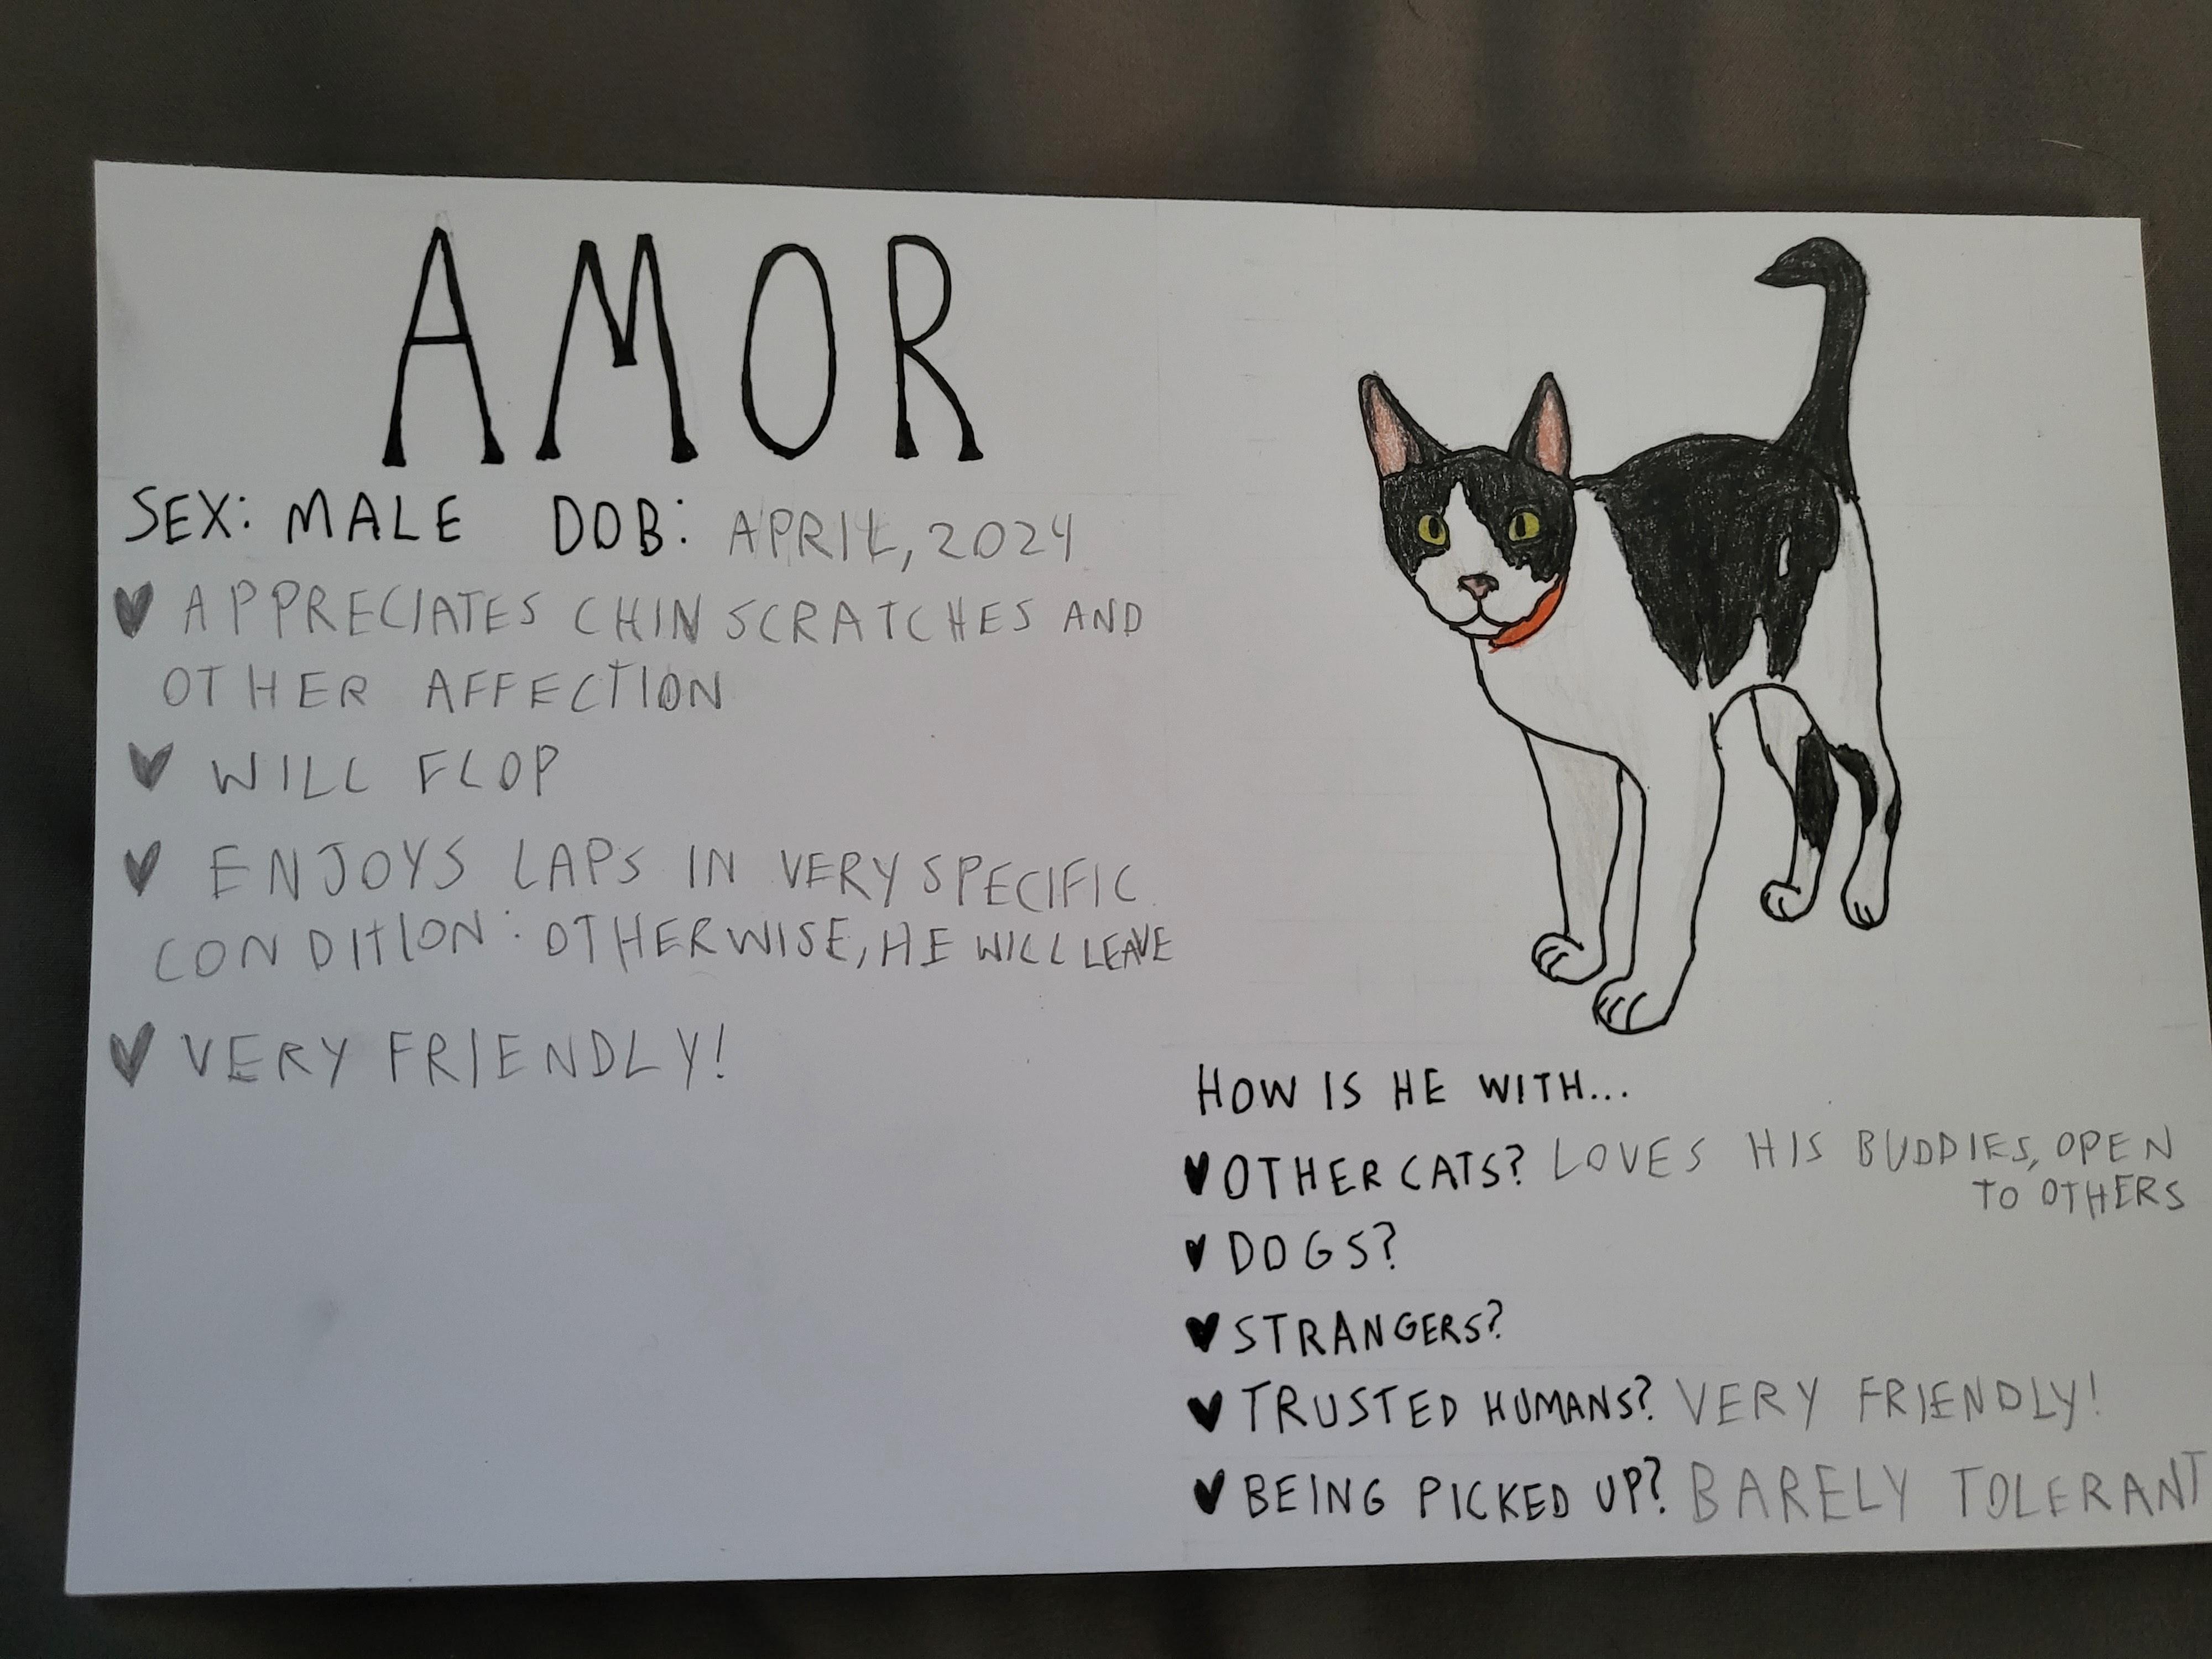 AMOR
SEX: MALE DOB: APRIL, 2024
♥ APPRECIATES CHIN SCRATCHES AND
OTHER AFFECTION
♥ WILL FLOP
♥ ENJOYS LAPS IN VERY SPECIFIC
CONDITION: OTHERWISE, HE WILL LEAVE
♥ VERY FRIENDLY!
HOW IS HE WITH...
♥ OTHER CATS? LOVES HIS BUDDIES, OPEN
TO OTHERS
♥ DOGS?
♥ STRANGERS?
♥ TRUSTED HUMANS? VERY FRIENDLY!
♥ BEING PICKED UP? BARELY TOLERANT